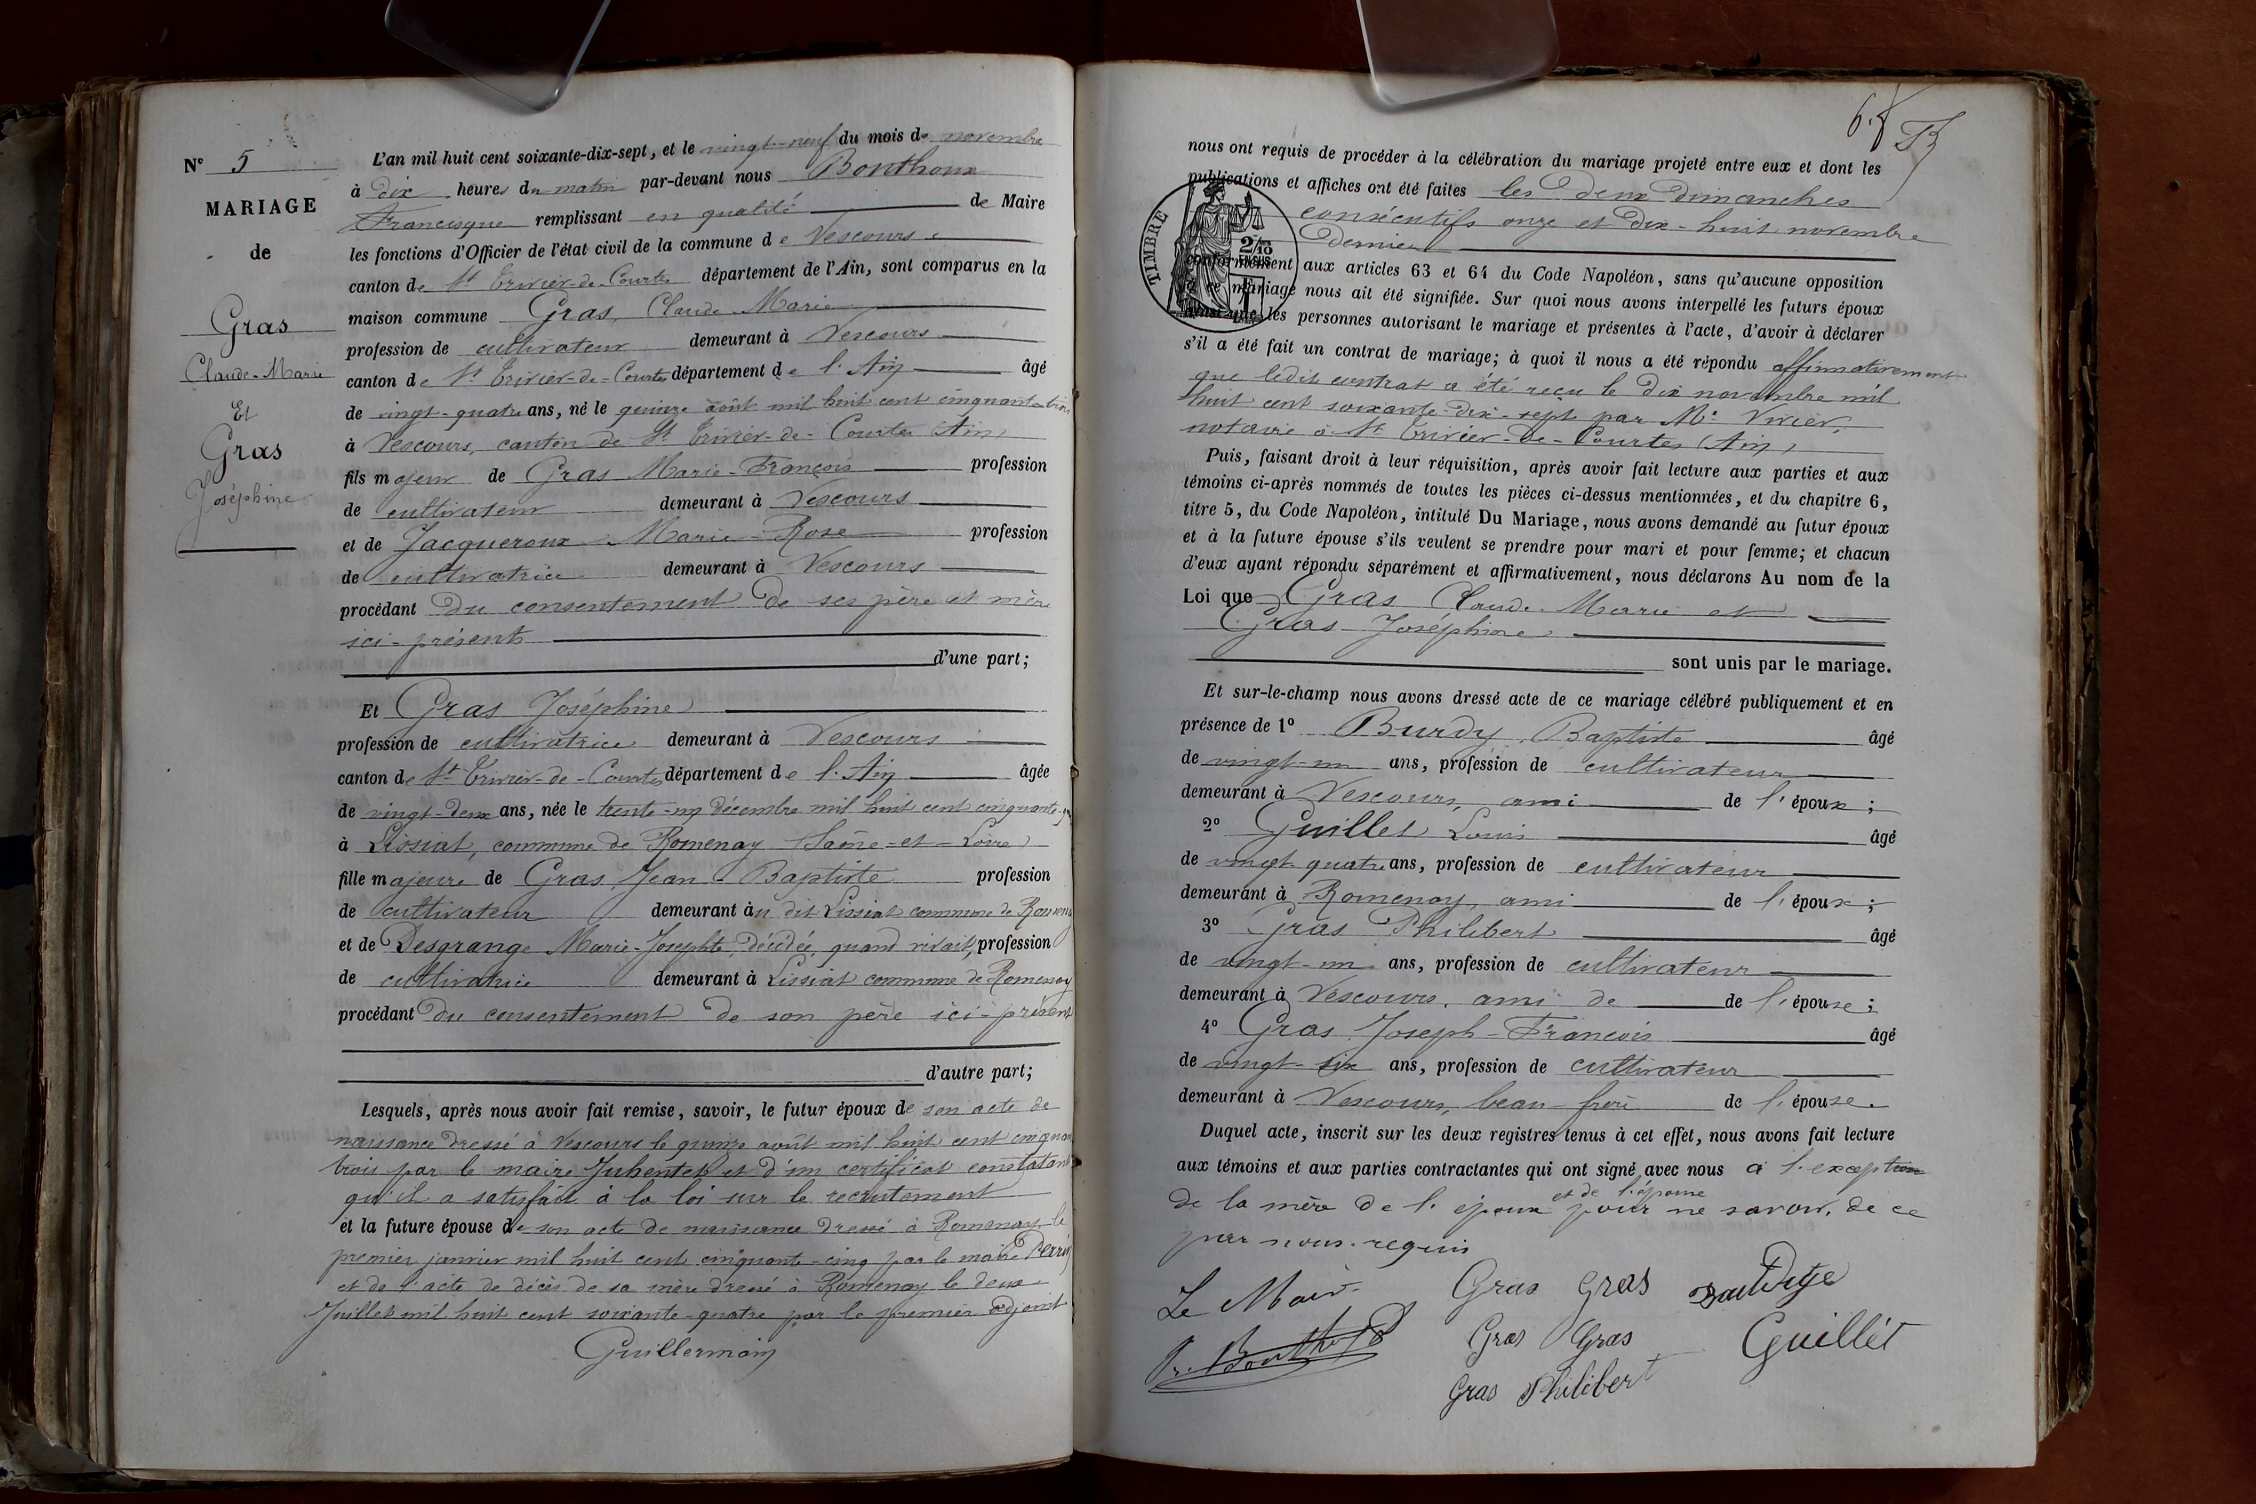 N° 5
MARIAGE
de
Gras
Claude-Marie
Et
Gras
Joséphine
L'an mil huit cent soixante-dix-sept, et le vingt-neuf du mois de novembre
à dix heures du matin par-devant nous Bouthoux
Francisque remplissant en qualité de Maire
les fonctions d'Officier de l'état civil de la commune de Vescours
canton de St Trivier-de-Courtes département de l'Ain, sont comparus en la
maison commune Gras, Claude Marie
profession de cultivateur demeurant à Vescours
canton de St Trivier-de-Courtes département de l'Ain âgé
de vingt-quatre ans, né le quinze août mil huit cent cinquante-trois
à Vescours, canton de St Trivier-de-Courtes (Ain)
fils majeur de Gras Marie-François profession
de cultivateur demeurant à Vescours
et de Jacqueroux Marie-Rose profession
de cultivatrice demeurant à Vescours
procédant du consentement de ses père et mère
ici-présents
d'une part;
Et Gras Joséphine
profession de cultivatrice demeurant à Vescours
canton de St Trivier-de-Courtes département de l'Ain âgée
de vingt-deux ans, née le trente-un décembre mil huit cent cinquante
à Lissiat, commune de Romenay (Saône-et-Loire)
fille majeure de Gras Jean-Baptiste profession
de cultivateur demeurant àu dit Lissiat commune de Romenay
et de Desgrange Marie-Josephte, décédée, quand vivait, profession
de cultivatrice demeurant à Lissiat commune de Romenay
procédant du consentement de son père ici-présent
d'autre part;
Lesquels, après nous avoir fait remise, savoir, le futur époux de son acte de
naissance dressé à Vescours le quinze août mil huit cent cinquante
trois par le maire et d'un certificat constatant
qu'il a satisfait à la loi sur le recrutement
et la future épouse de son acte de naissance dressé à Romenay le
premier janvier mil huit cent cinquante-cinq par le maire
et de l'acte de décès de sa mère dressé à Romenay le deux
Juillet mil huit cent soixante-quatre par le premier adjoint
Guillermain
6.
nous ont requis de procéder à la célébration du mariage projeté entre eux et dont les
publications et affiches ont été faites les deux dimanches
consécutifs onze et dix-huit novembre
dernier
TIMBRE
2/10 EN SUS
conformément aux articles 63 et 64 du Code Napoléon, sans qu'aucune opposition
mariage nous ait été signifiée. Sur quoi nous avons interpellé les futurs époux
ainsi que les personnes autorisant le mariage et présentes à l'acte, d'avoir à déclarer
s'il a été fait un contrat de mariage; à quoi il nous a été répondu affirmativement
que ledit contrat a été reçu le dix novembre mil
huit cent soixante-dix-sept par Me Vivier,
notaire à St Trivier-de-Courtes (Ain)
Puis, faisant droit à leur réquisition, après avoir fait lecture aux parties et aux
témoins ci-après nommés de toutes les pièces ci-dessus mentionnées, et du chapitre 6,
titre 5, du Code Napoléon, intitulé Du Mariage, nous avons demandé au futur époux
et à la future épouse s'ils veulent se prendre pour mari et pour femme; et chacun
d'eux ayant répondu séparément et affirmativement, nous déclarons Au nom de la
Loi que Gras Claude-Marie et
Gras Joséphine
sont unis par le mariage.
Et sur-le-champ nous avons dressé acte de ce mariage célébré publiquement et en
présence de 1° Burdy Baptiste âgé
de vingt-un ans, profession de cultivateur
demeurant à Vescours, ami de l'époux;
2° Guillet Louis âgé
de vingt-quatre ans, profession de cultivateur
demeurant à Romenay, ami de l'époux;
3° Gras Philibert âgé
de vingt-un ans, profession de cultivateur
demeurant à Vescours, ami de de l'épouse;
4° Gras Joseph-François âgé
de vingt-six ans, profession de cultivateur
demeurant à Vescours, beau-frère de l'épouse.
Duquel acte, inscrit sur les deux registres tenus à cet effet, nous avons fait lecture
aux témoins et aux parties contractantes qui ont signé avec nous à l'exception
de la mère de l'époux et de l'épouse pour ne savoir, de ce
par nous requis
Le Maire
Gras Gras
Gras Gras Guillet
Gras Philibert